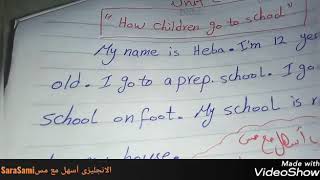 "How children go to school"
My name is Heba. I'm 12 yes
old. I go to a prep. school. I go
school on foot. My school is
house.
أسهل مع مس
SaraSami الانجليزى أسهل مع مس
Made with
VideoShow